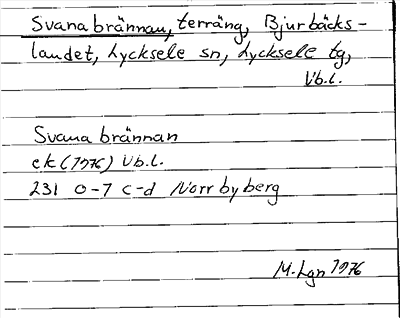 Svanabrännan, terräng, Bjurbäcks-
landet, Lycksele sn, Lycksele tg,
Vb.l.
Svanabrännan
ek (1976) Vb.l.
231 0-7 c-d Norrbyberg
M. Lgn 1976